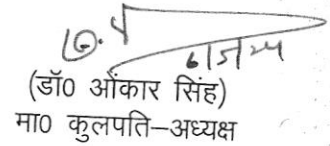 (डॉ0 ओंकार सिंह)
मा0 कुलपति–अध्यक्ष